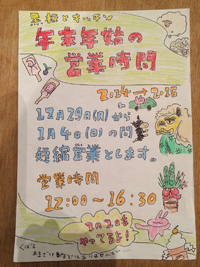 黒板とキッチン
年末年始の
営業時間
2014→2015
12月29日(月)から
1月4日(日)の間
短縮営業とします。
営業時間
12:00〜16:30
1月2日も
やってるよ!